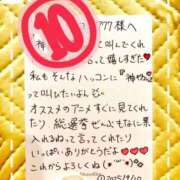 10
777様へ
「神
って叫んでくれ
って嬉しすぎた♡
私もそんなハッコンに『神セ
って叫びたいよ
オススメのアニメすぐに見てくれ
たり 総選挙ぜんぶもなに票
入れるねって言ってくれたり
いっぱいありがとうだよ
これからよろしくね(*˘︶˘*)
2015/9/10